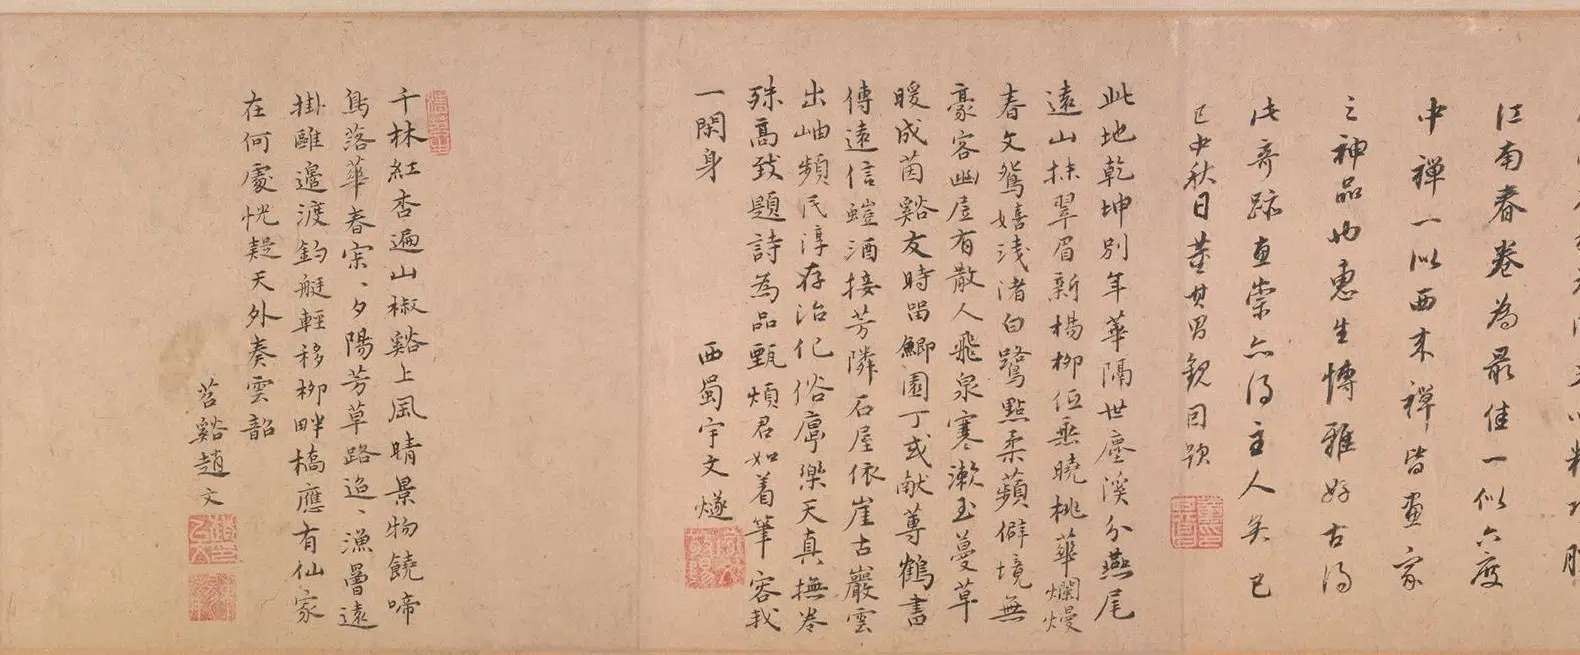 江南春卷為最佳一似六度
中禪一以西来禪皆畫家
之神品也惠生博雅好古得
此奇跡直崇亦得主人矣己
巳中秋日董其昌觀因題
此地乾坤別年華隔世塵溪分燕尾
遠山抹翠眉新楊柳伍無曉桃華爛熳
春文鴛嬉淺渚白鷺點柔蘋僻境無
豪客幽崖有散人飛泉寒漱玉蔓草
暖成茵谿友時留鯽園丁或献蓴鶴書
傳遠信螘酒接芳隣石屋依崖古巖雲
出岫頻民淳存治化俗厚樂天真撫卷
殊高致題詩為品甄煩君如着筆容我
一閑身
西蜀宇文燧
千林紅杏遍山椒谿上風晴景物饒啼
鳥落華春寂、夕陽芳草路迢、漁罾遠
掛雖邉渡釣艇輕移柳畔橋應有仙家
在何處恍疑天外奏雲韶
苕谿趙文